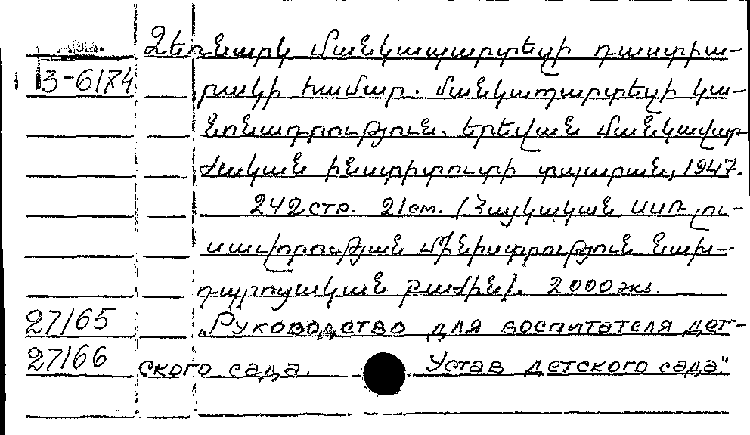 Ձեռնարկ մանկապարտեզի դաստիա-
3-6174
րակի համար. մանկապարտեզի կա-
նոնադրություն. Երեվան մանկավար
ժական ինստիտուտի տպարան, 1947.
242 стр. 21 см. (Հայկական ՍՍՌ լու-
սավորության մինիստրություն նախ-
դպրոցական բաժին). 2000 экз.
27165 „Руководство для воспитателя дет-
27166 ского сада. Устав детского сада"